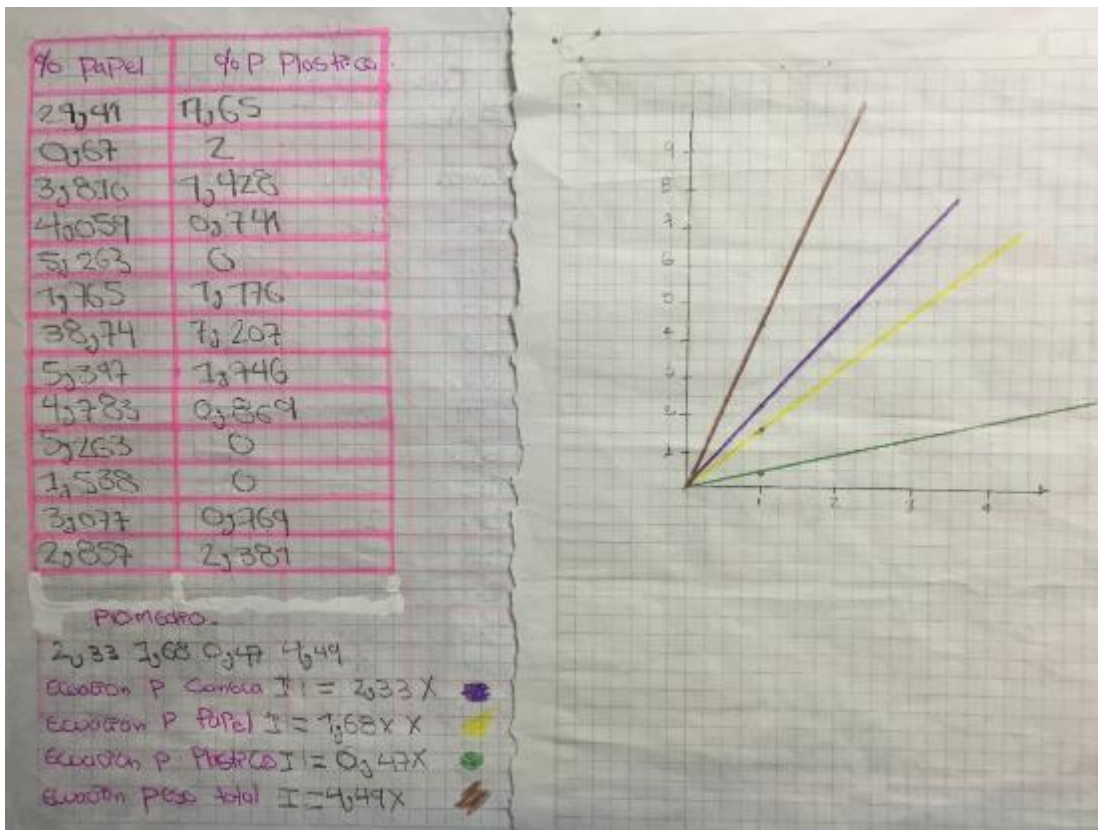 % Papel % P Plastico.
29,41 17,65
0,67 2
3,810 1,428
4,059 0,741
5,263 0
1,765 1,176
38,74 7,207
5,397 1,746
4,783 0,869
5,263 0
1,538 0
3,077 0,769
2,857 2,381
Promedio.
2,33 1,68 0,47 4,49
Ecuación P I = 2,33 X
Ecuación P Papel I = 1,68x X
Ecuación P Plastico I = 0,47X
Ecuación peso total I = 4,49X
9
8
7
6
5
4
3
2
1
1 2 3 4